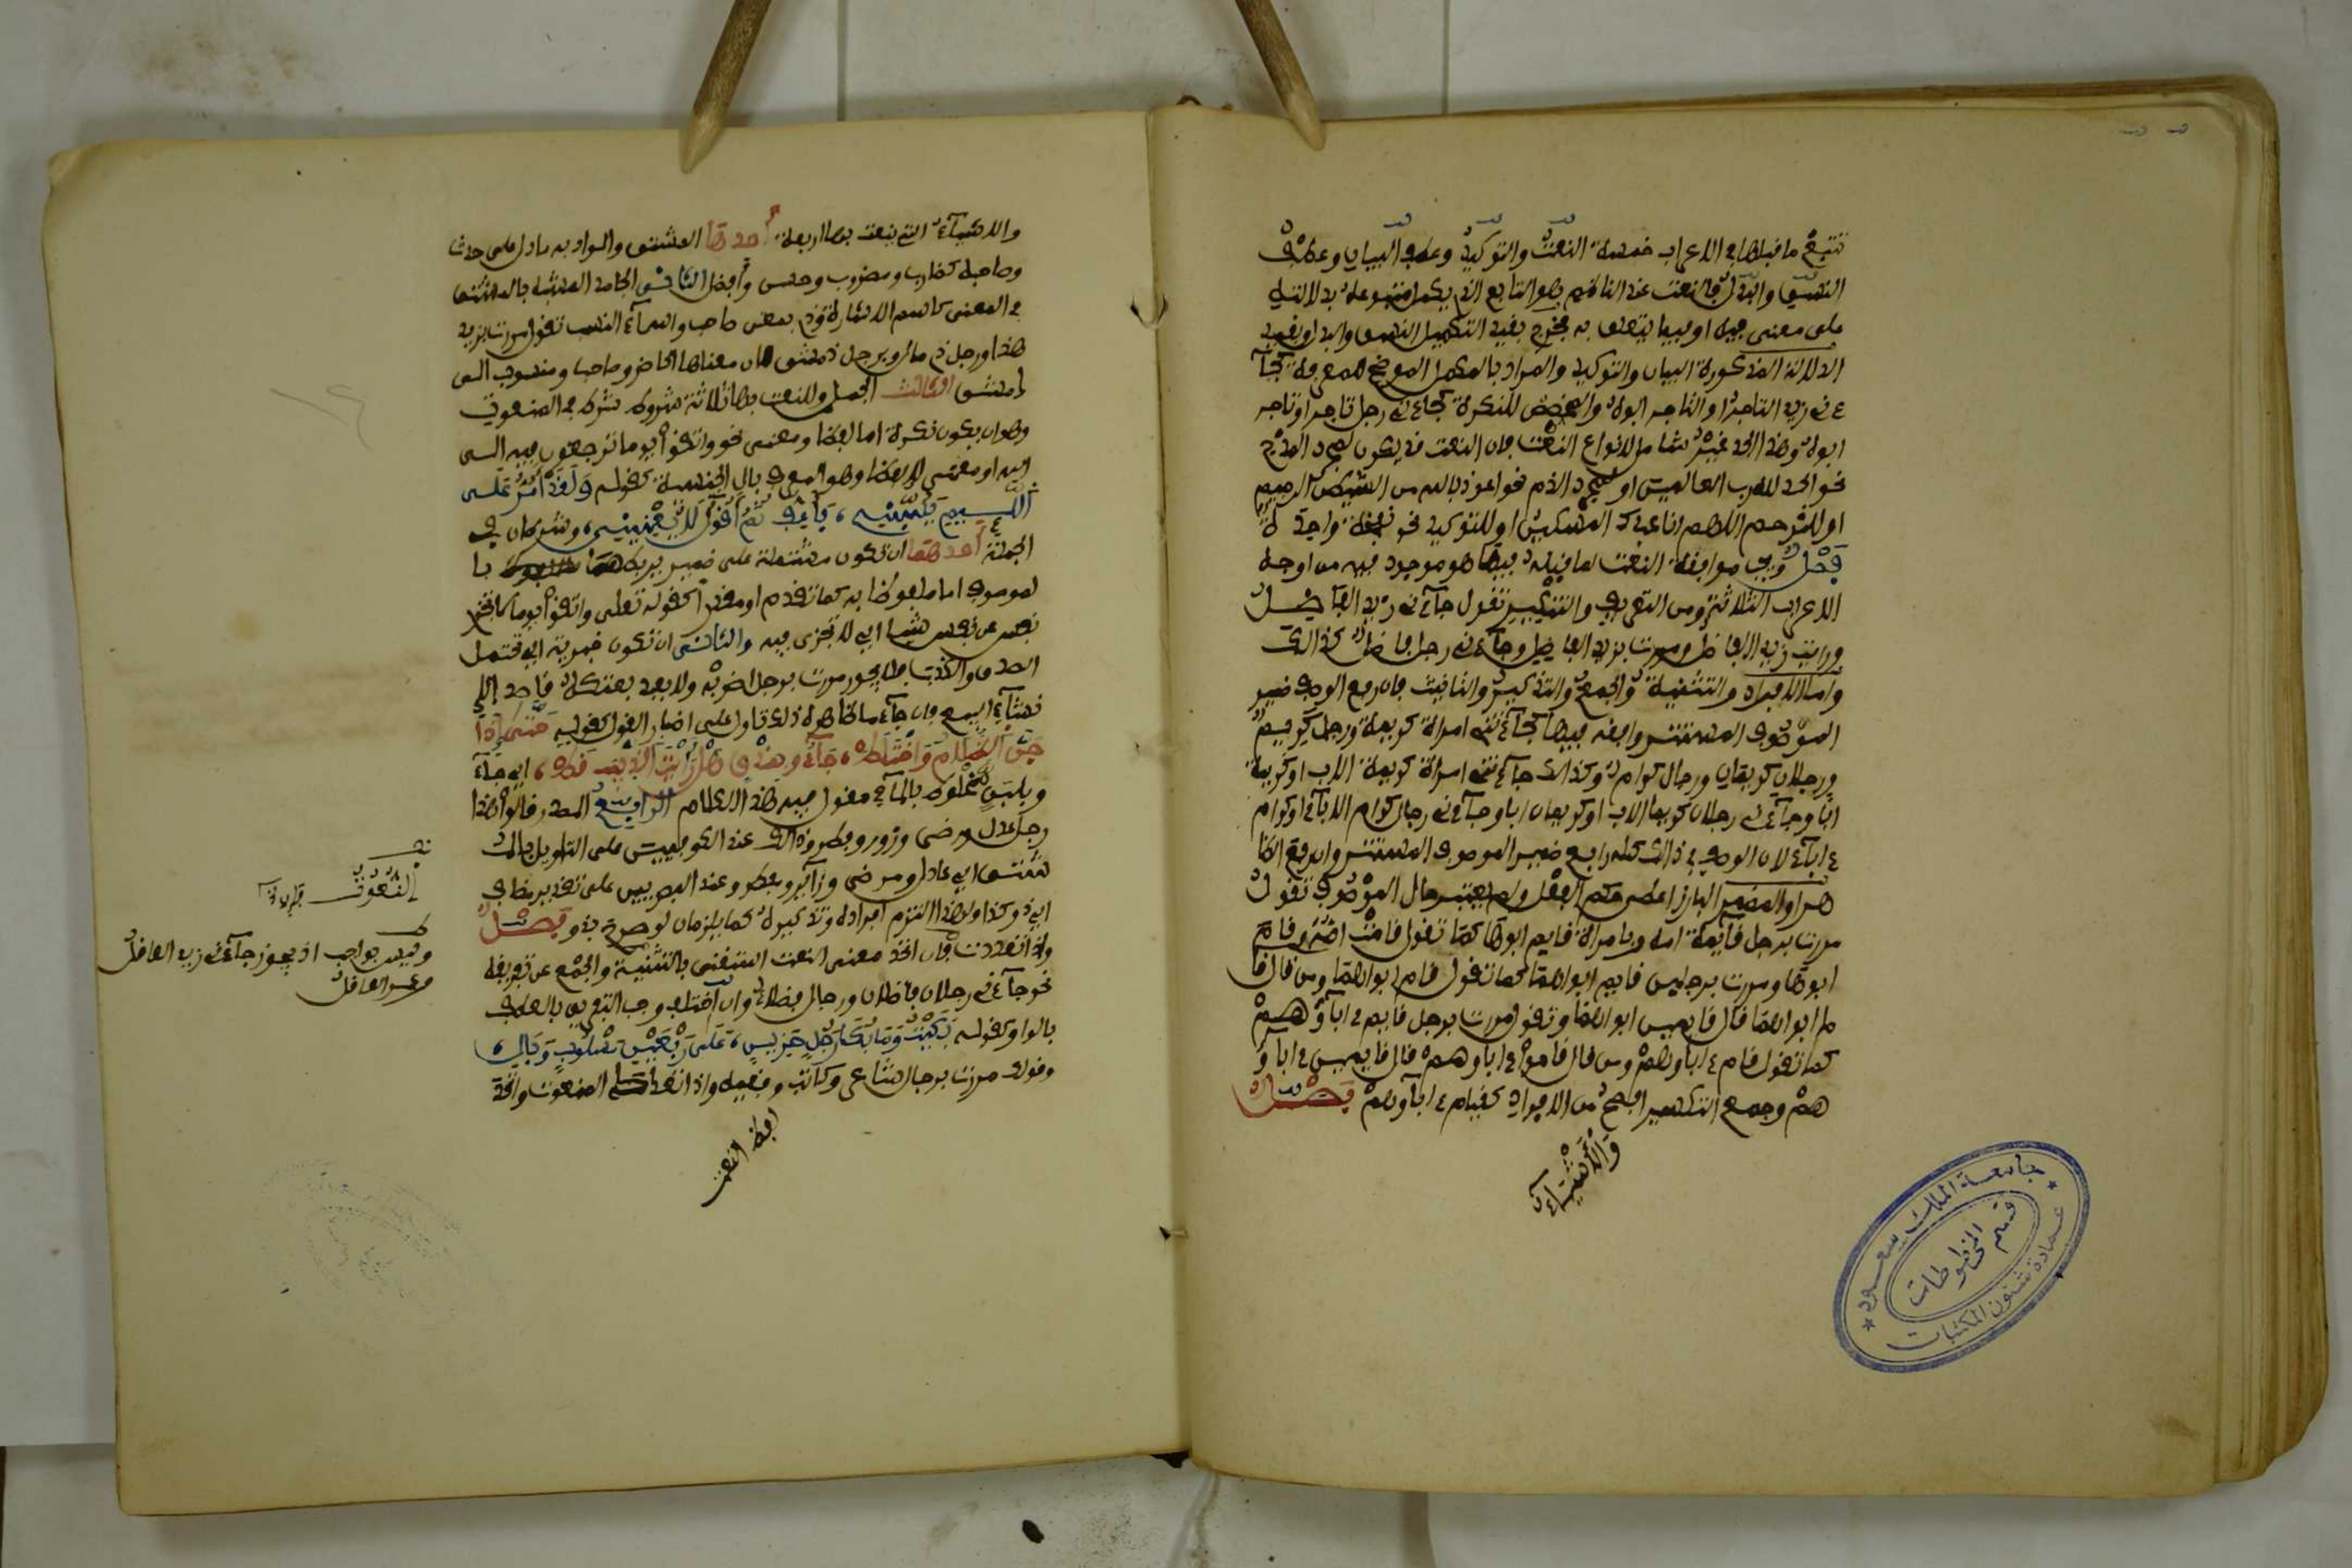 تتبع ما قبلها في الاعراب خمسة النعت والتوكيد وعطف البيان وعطف
النسق والبدل فالنعت عند الناظم هو التابع الذي يكمل متبوعه بدلالته
على معنى فيه او فيما يتعلق به فخرج بقيد التكميل النسق والبدل وبقيد
الدلالة المذكورة البيان والتوكيد والمراد بالمكمل الموضح للمعرفة كجآ
ءني زيد التاجر او التاجر ابوه والمخصص للنكرة كجاءني رجل تاجر او تاجر
ابوه وهذا الحد غير شامل لانواع النعت فان النعت قد يكون لمجرد المدح
نحو الحمد لله رب العالمين او لمجرد الذم نحو اعوذ بالله من الشيطان الرجيم
او للترحم اللهم انا عبدك المسكين او للتوكيد نحو نفخة واحدة
فصل ويجب موافقة النعت لما قبله فيما هو موجود فيه من اوجه
الاعراب الثلاثة ومن التعريف والتنكير تقول جآءني زيد الفاضل
ورايت زيدا الفاضل ومررت بزيد الفاضل وجآءني رجل فاضل كذلك
واما الافراد والتثنية والجمع والتذكير والتانيث فان رفع الوصف ضمير
الموصوف المستتر وافقه فيها كجآءتني امراة كريمة ورجل كريم
ورجلان كريمان ورجال كرام وكذلك جآءتني امراة كريمة الاب او كريمة
ابا وجآءني رجلان كريما الاب او كريمان ابا وجآءني رجال كرام الابآء او كرام
ءابآء لان الوصف في ذلك كله رافع ضمير الموصوف المستتر وان رفع الظا
هر او الضمير البارز اعطى حكم الفعل ولم يعتبر حال الموصوف تقول
مررت برجل قآئمة امه وبامراة قايم ابوها كما تقول قامت امه وقام
ابوها ومررت برجلين قايم ابواهما كما تقول قام ابواهما ومن قال قا
ما ابواهما قال قايمين ابواهما وتقول مررت برجل قايم ءابآؤهم
كما تقول قام ءاباؤهم ومن قال قاموا ءاباوهم قال قايمين ءاباؤ
هم وجمع التكسير افصح من الافراد كقيام ءابآوهم فصل
والاشيآء
جامعة الملك سعود
قسم المخطوطات
عمادة شئون المكتبات
والاشيآء التي ينعت بها اربعة احدها المشتق والمراد به ما دل على حدث
وصاحبه كضارب ومضروب وحسن وافضل الثاني الجامد المشبه بالمشتق
في المعنى كاسم الاشارة وذي بمعنى صاحب واسمآء النسب تقول مررت بزيد
هذا ورجل ذي مال وبرجل دمشقي لان معناها الحاضر وصاحب ومنسوب الى
دمشق الثالث الجمل وللنعت بها ثلاثة شروط شرط في المنعوت
وهو ان يكون نكرة اما لفظا ومعنى نحو واتقوا يوما ترجعون فيه الى
الله او معنى لا لفظا وهو المعرف بال الجنسية كقوله ولقد امر على
اللئيم يسبني فاعف ثم اقول لا يعنيني وشرطان في
الجملة احدهما ان تكون مشتملة على ضمير يربطها با
لموصوف اما ملفوظ به كما تقدم او مقدر كقوله تعلى واتقوا يوما لا تجزي
نفس عن نفس شيا اي لا تجزى فيه والثاني ان تكون خبرية اي تحتمل
الصدق والكذب فلا يجوز مررت برجل اضربه ولا بعبد بعتكه قاصدا
انشآء البيع فان جآء ما ظاهره ذلك تاول على اضمار القول كقوله حتى اذا
جن الظلام واختلط جآءو بمذق هل رايت الذيب قط اي جآءو
بلبن مخلوط بالمآء مقول فيه هذا الكلام الرابع المصدر قالوا هذا
رجل عدل ورضى وزور وفطر وذلك عند الكوفيين على التاويل بالمـ
شتق اي عادل ومرضي وزآير ومفطر وعند البصريين على تقدير مضاف
اي ذو كذا ولهذا التزم افراده وتذكيره كما يلزمان لو صرح بذو فصل
واذا تعددت فان اتحد معنى النعت استغنى بالتثنية والجمع عن تفريقه
نحو جآءني رجلان فاضلان ورجال فضلاء وان اختلف وجب التفريق بالعطف
بالواو كقوله بكيت وما بكا رجل حزين على ربعين مسلوب وبالي
وقولك مررت برجال شاعر وكاتب وفقيه واذا تعدد المنعوت واتحد
لفظ النعت
النعوت
وليس بواجب اذ يجوز جآءني زيد العاقل
وعمر العاقل